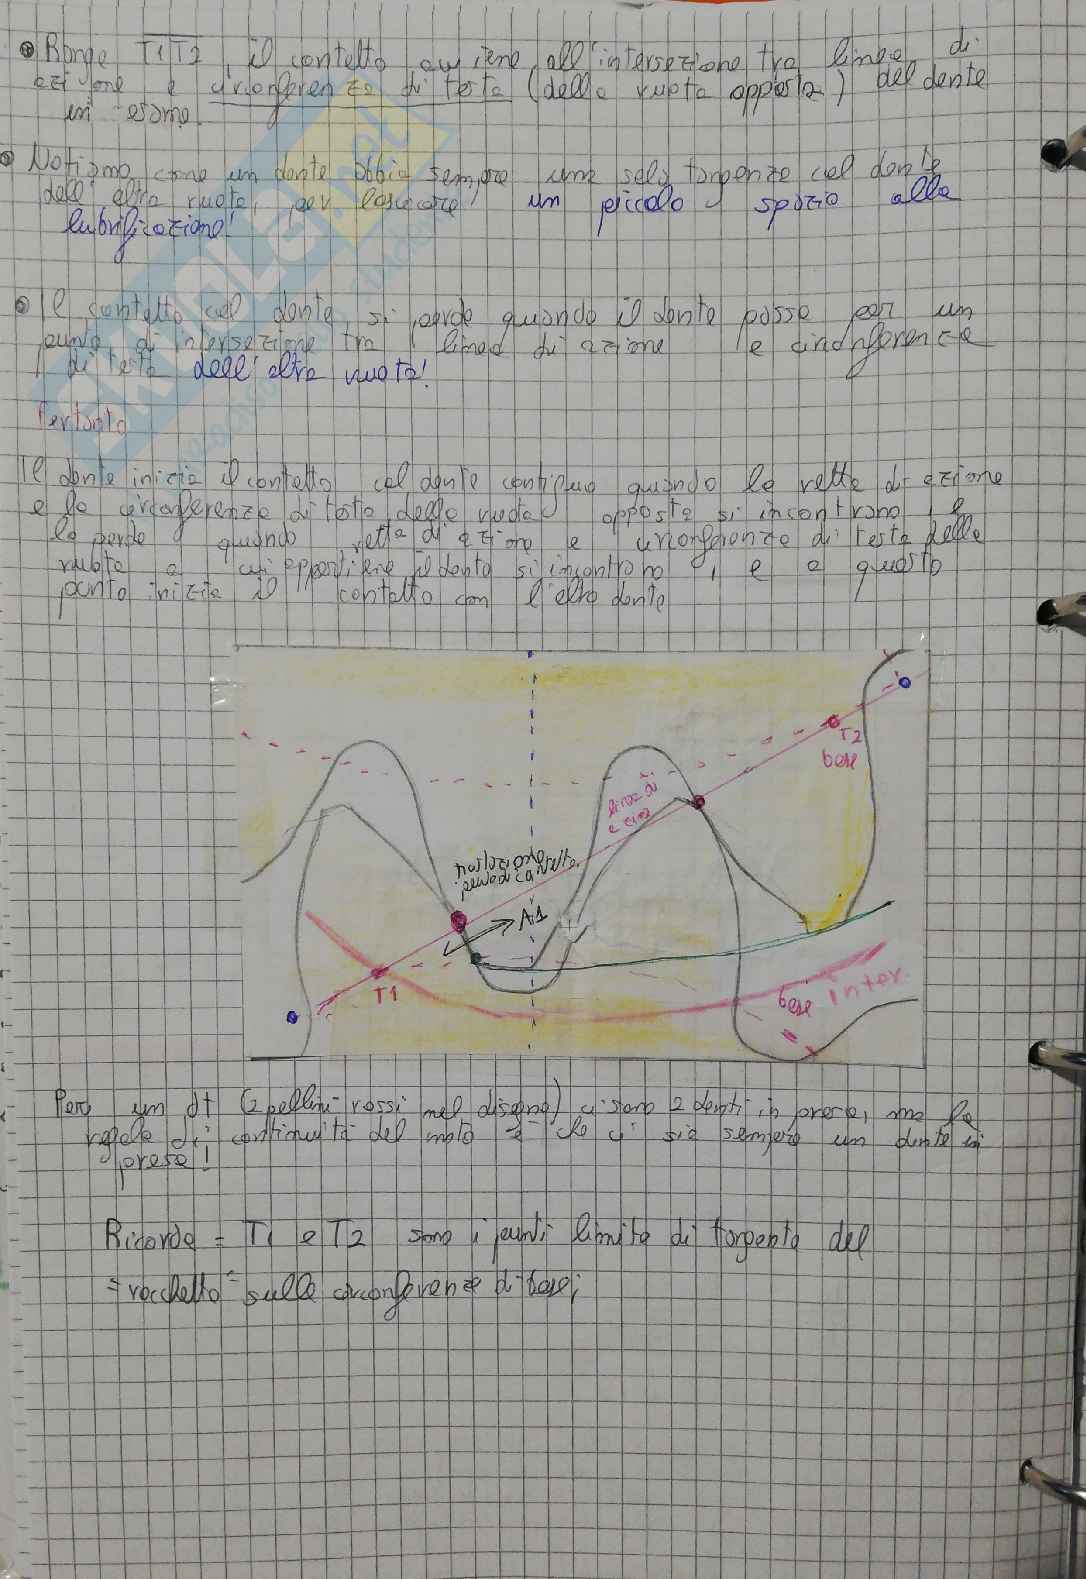 Range T1T2, il contatto avviene all'intersezione tra linea di
azione e circonferenza di testa (della ruota opposta) del dente
in esame.
Notiamo come un dente abbia sempre una sola tangenza col dente
dell'altra ruota, per lasciare un piccolo spazio alla
lubrificazione!
Il contatto col dente si perde quando il dente passa per un
punto di intersezione tra linea di azione e circonferenza
di testa dell'altra ruota!
Pertanto
Il dente inizia il contatto col dente contiguo quando la retta di azione
e la circonferenza di testa della ruota opposta si incontrano, e
lo perde quando retta di azione e circonferenza di testa della
ruota a cui appartiene il dente si incontrano, e a questo
punto inizia il contatto con l'altro dente
T2
base
linea di
azione
A1
T1
base inter.
Però un dt (2 pallini rossi nel disegno) ci sono 2 denti in presa, ma la
regola di continuità del moto è che ci sia sempre un dente in
presa!
Ricorda = T1 e T2 sono i punti limite di tangenza del
rocchetto sulla circonferenza di base;
SKUOLA.net